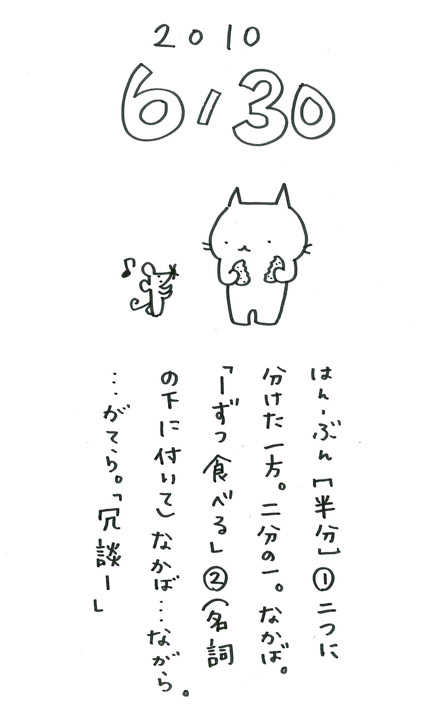 2010
6/30
はん-ぶん【半分】①二つに
分けた一方。二分の一。なかば。
「ーずつ食べる」②(名詞
の下に付いて)なかば…ながら。
…がてら。「冗談ー」